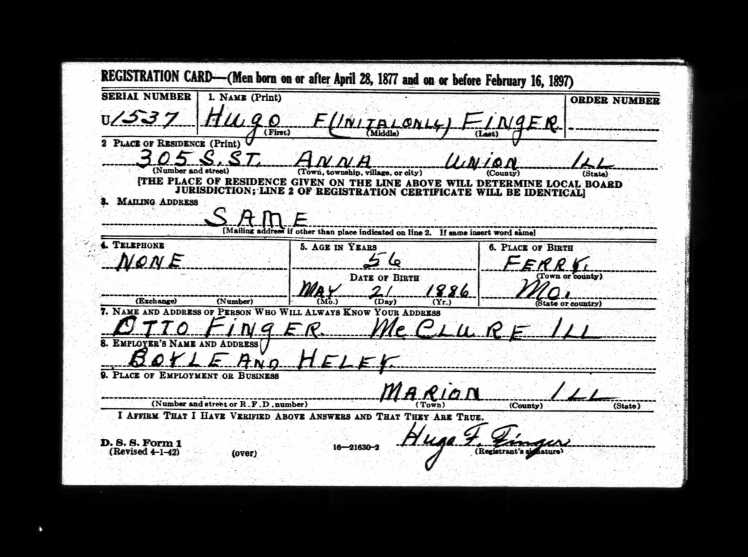 REGISTRATION CARD—(Men born on or after April 28, 1877 and on or before February 16, 1897)
SERIAL NUMBER 1. NAME (Print) ORDER NUMBER
U 1537 HUGO F(INITALONLY) FINGER
(First) (Middle) (Last)
2 PLACE OF RESIDENCE (Print)
305 S. ST. ANNA UNION ILL
(Number and street) (Town, township, village, or city) (County) (State)
[THE PLACE OF RESIDENCE GIVEN ON THE LINE ABOVE WILL DETERMINE LOCAL BOARD
JURISDICTION; LINE 2 OF REGISTRATION CERTIFICATE WILL BE IDENTICAL]
3. MAILING ADDRESS
SAME
[Mailing address if other than place indicated on line 2. If same insert word same]
4. TELEPHONE 5. AGE IN YEARS 6. PLACE OF BIRTH
NONE 56 FERRY.
DATE OF BIRTH (Town or county)
MAY 21 1886 MO.
(Exchange) (Number) (Mo.) (Day) (Yr.) (State or country)
7. NAME AND ADDRESS OF PERSON WHO WILL ALWAYS KNOW YOUR ADDRESS
OTTO FINGER McCLURE ILL
8. EMPLOYER'S NAME AND ADDRESS
BOYLE AND HELEY.
9. PLACE OF EMPLOYMENT OR BUSINESS
MARION ILL
(Number and street or R. F. D. number) (Town) (County) (State)
I AFFIRM THAT I HAVE VERIFIED ABOVE ANSWERS AND THAT THEY ARE TRUE.
D. S. S. Form 1 Hugo F. Finger
(Revised 4-1-42) (over) 16—21630-2 (Registrant's signature)